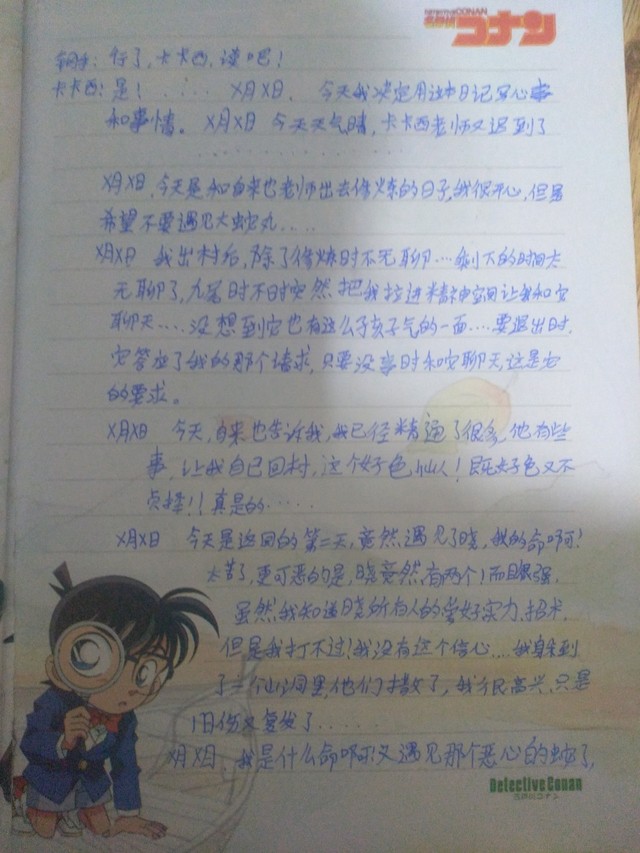 DETECTIVE CONAN
名探偵コナン
纲手：行了，卡卡西，读吧！
卡卡西：是！……X月X日、今天我决定用这本日记写心事
和事情。X月X日 今天天气晴，卡卡西老师又迟到了
…………
X月X日，今天是和自来也老师出去修炼的日子，我很开心，但是
希望不要遇见大蛇丸....
X月X日 我出村后，除了修炼时不无聊…剩下的时间太
无聊了，九尾时不时突然把我拉进精神空间让我和它
聊天....没想到它也有这么孩子气的一面....要退出时，
它答应了我的那个请求，只要没事时和它聊天，这是它
的要求。
X月X日 今天，自来也告诉我，我已经精通了很多，他有些
事，让我自己回村，这个好色仙人！既好色又不
负责！！真是的.....
X月X日 今天是返回的第二天，竟然遇见了晓，我的命啊！
太苦了，更可恶的是，晓竟然有两个！而且很强，
虽然我知道晓所有人的爱好实力、招术，
但是我打不过！我没有这个信心....我躲到
了三仙洞里，他们撤了，我很高兴，只是
旧伤又复发了.....
X月X日、我是什么命啊！又遇见那个恶心的蛇了，
Detective Conan
名探偵コナン